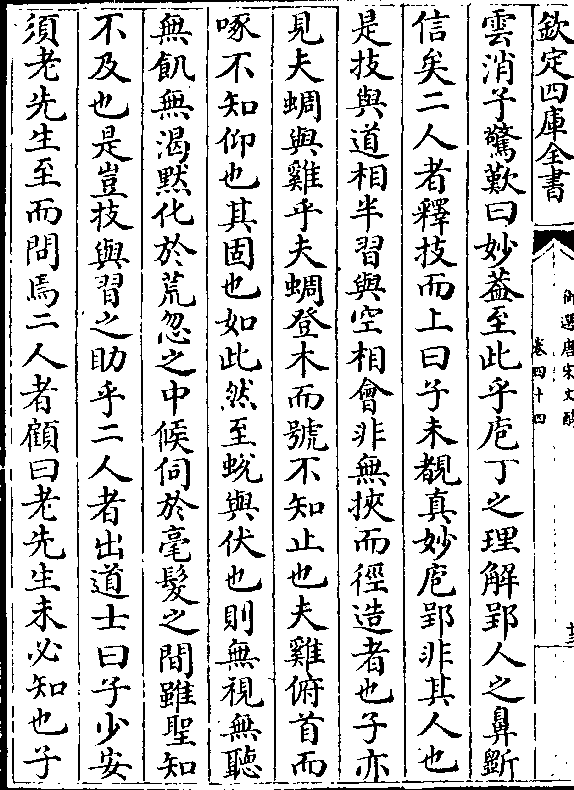 欽定四庫全書
御選唐宋文醇
卷四十四
雲消子驚歎曰妙葢至此乎庖丁之理解郢人之鼻斵
信矣二人者釋技而上曰子未覩真妙庖郢非其人也
是技與道相半習與空相會非無挾而徑造者也子亦
見夫蜩與雞乎夫蜩登木而號不知止也夫雞俯首而
啄不知仰也其固也如此然至蛻與伏也則無視無聽
無飢無渴黙化於荒忽之中候伺於毫髮之間雖聖知
不及也是豈技與習之助乎二人者出道士曰子少安
須老先生至而問焉二人者顧曰老先生未必知也子